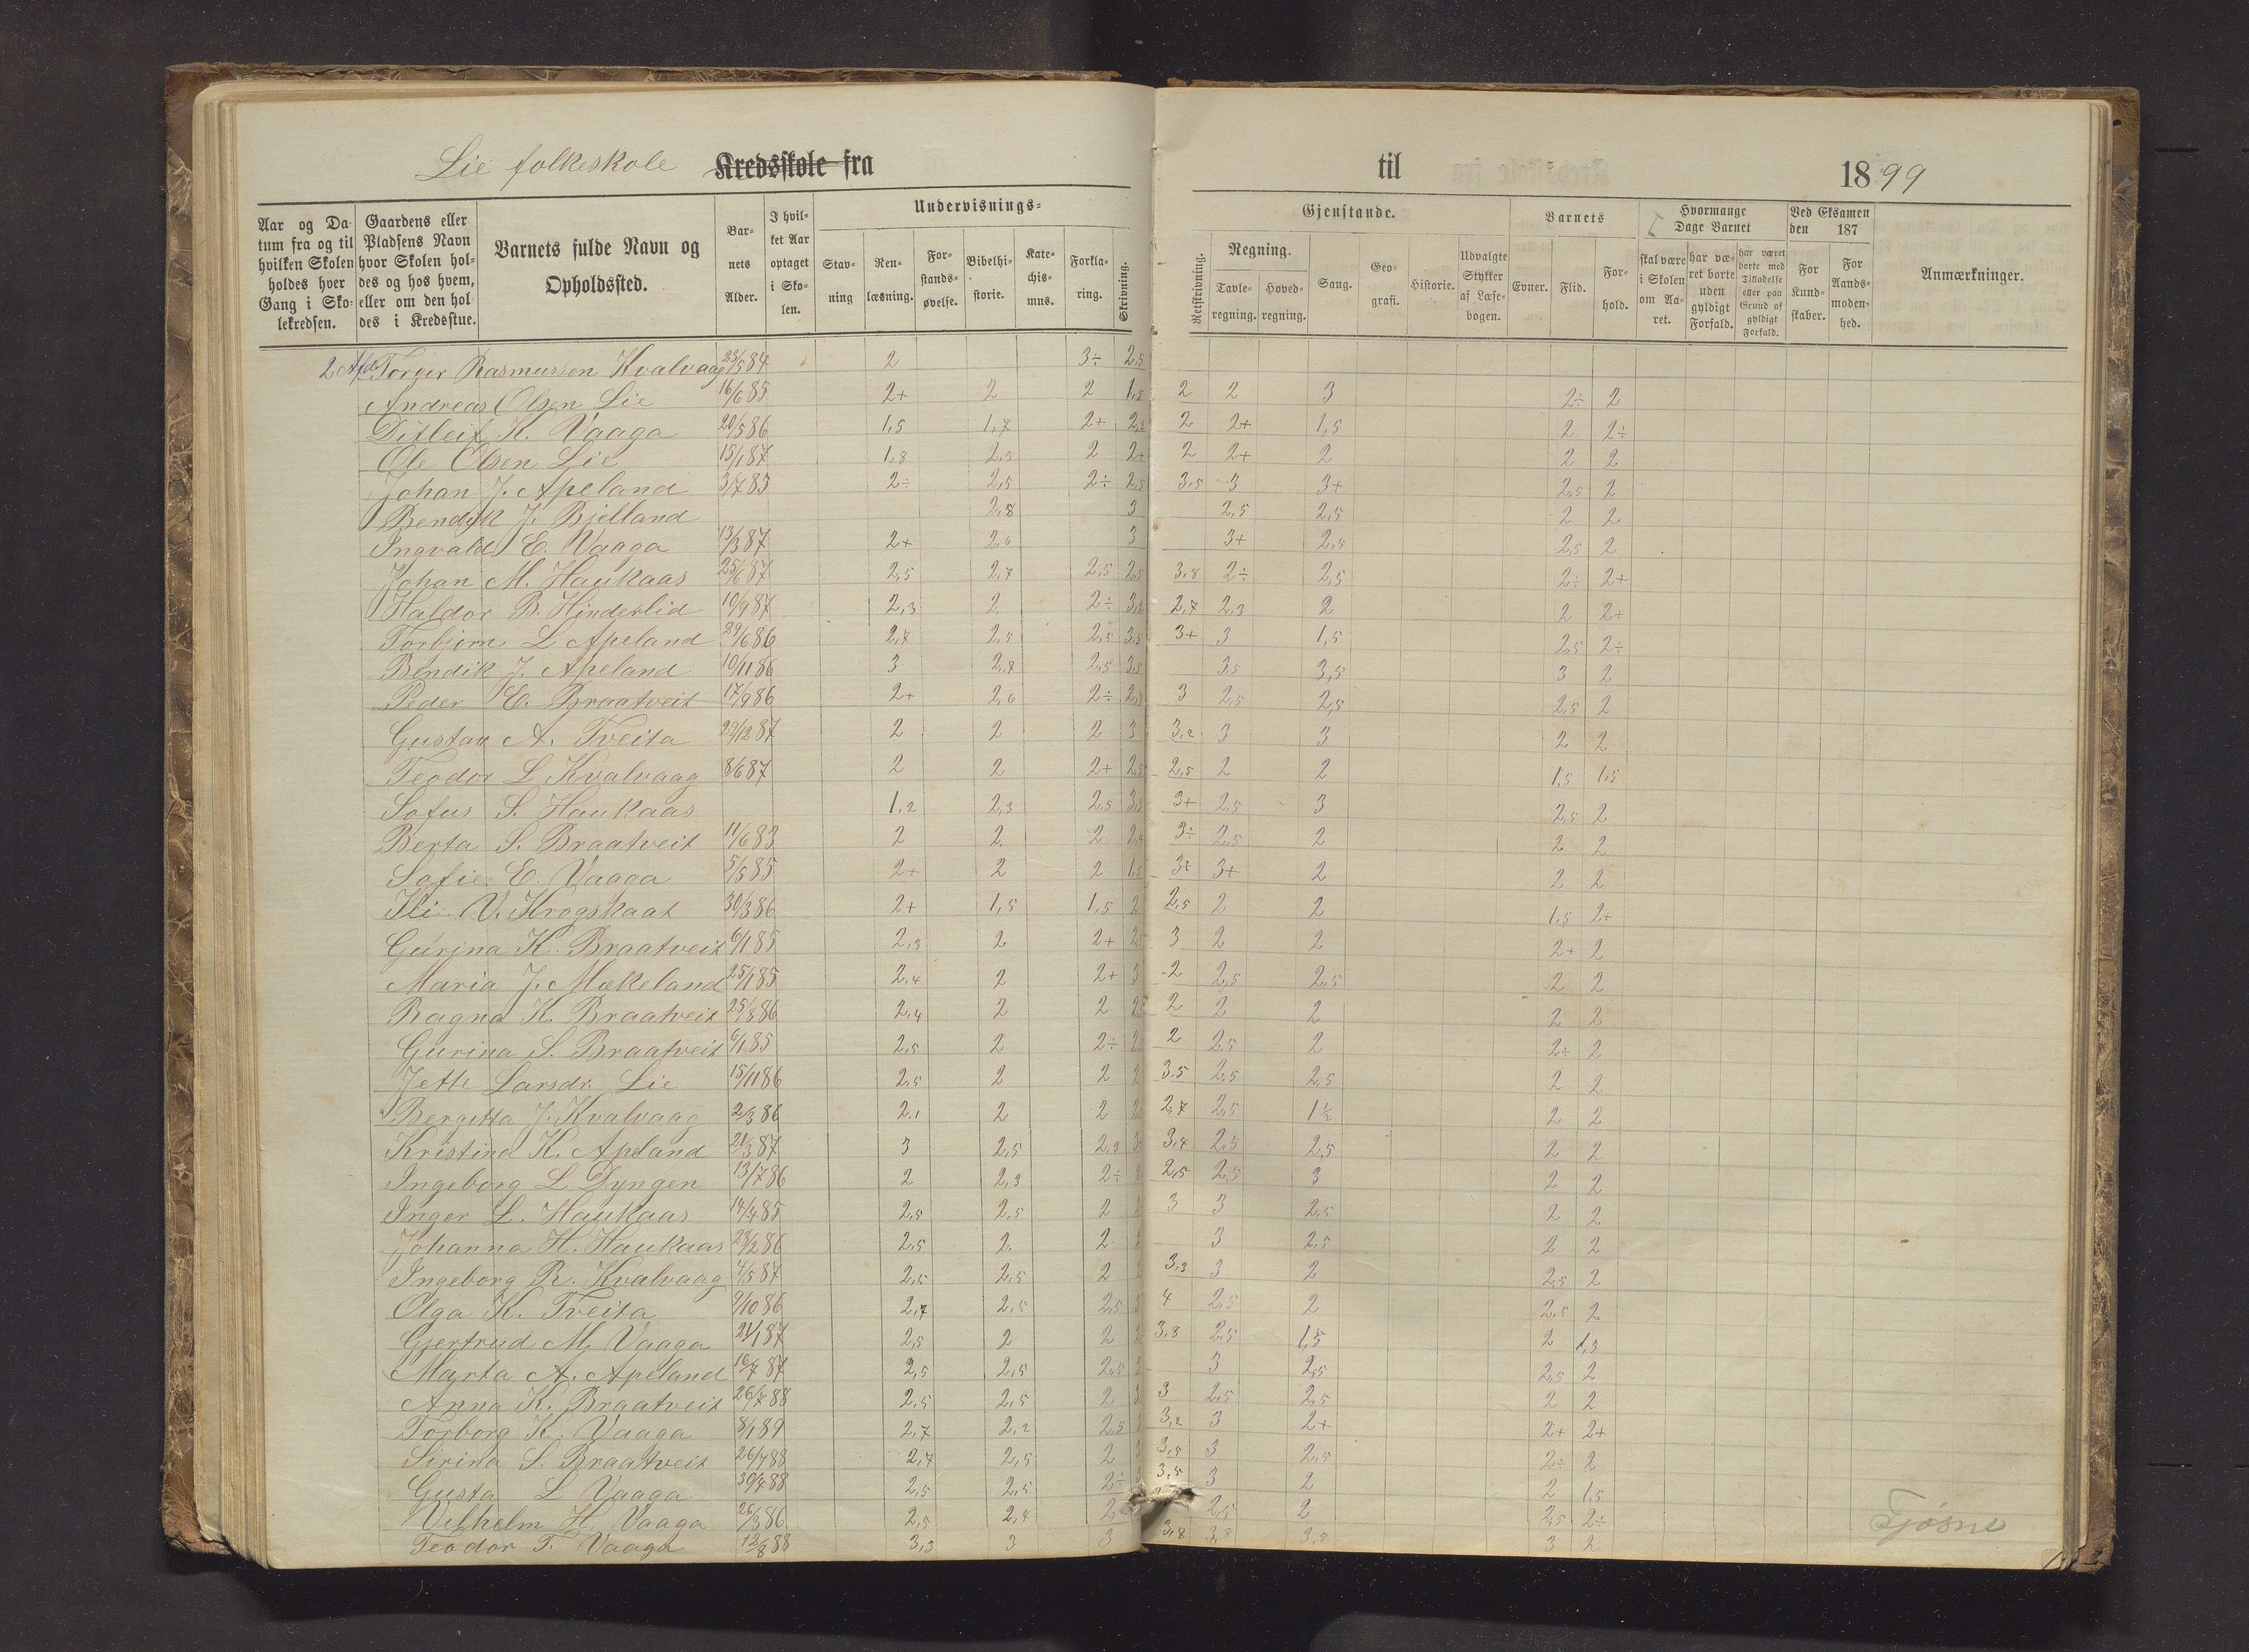 Lie folkeskole Kredsskole fra til 1899
Aar og Datum fra og til hvilken Skolen holdes hver Gang i Skolekredsen.
Gaardens eller Pladsens Navn hvor Skolen holdes og hos hvem, eller om den holdes i Kredsstue.
Barnets fulde Navn og Opholdssted.
Barnets Alder.
I hvilket Aar optaget i Skolen.
Undervisnings-Gjenstande.
Stavning
Renlæsning.
Forstandsøvelse.
Bibelhistorie.
Katechismus.
Forklaring.
Skrivning.
Retskrivning.
Regning.
Tavleregning.
Hovedregning.
Sang.
Geografi.
Historie.
Udvalgte Stykker af Læsebogen.
Barnets
Evner.
Flid.
Forhold.
Hvormange Dage Barnet
skal være i Skolen om Aaret.
har været borte uden gyldigt Forfald.
har været borte med Tilladelse eller paa Grund af gyldigt Forfald.
Ved Eksamen den 187
For Kundskaber.
For Aandsmodenhed.
Anmærkninger.
2 Afd. Torger Rasmussen Kvalvaag 23/5 84 2 3÷ 2,5
Andreas Olsen Lie 16/6 85 2+ 2 2 1,5 2 2 3 2÷ 2
Ditleif K. Vaaga 20/5 86 1,5 1,7 2+ 2 2+ 1,5 2 2÷
Ole Olsen Lie 15/1 87 1,8 2,3 2 2+ 2 2+ 2 2 2
Johan J. Apeland 3/7 85 2÷ 2,5 2÷ 2,5 3,5 3 3+ 2,5 2
Bendik J. Bjelland 2,8 3 2,5 2,5 2 2
Ingvald E. Vaaga 13/3 87 2+ 2,6 3 3+ 2,5 2,5 2
Johan M. Haukaas 25/6 87 2,5 2,7 2,5 2,5 3,8 2÷ 2,5 2÷ 2+
Haldor B. Hinderlid 10/9 87 2,3 2 2÷ 2,7 2,3 2 2 2+
Torbjørn L Apeland 29/6 86 2,7 2,5 2,5 3,5 3+ 3 1,5 2,5 2÷
Bendik J. Apeland 10/11 86 3 2,7 2,5 3,5 3,5 3,5 3 2
Peder E. Braatveit 17/9 86 2+ 2,6 2÷ 3 2,5 2,5 2,5 2
Gustav A. Tveita 29/12 87 2 2 2 3 3,2 3 3 2 2
Teodor L Kvalvaag 8/6 87 2 2 2+ 2,5 2,5 2 2 1,5 1,5
Sofus S. Haukaas 1,2 2,3 2,5 3+ 2,5 3 2,5 2
Berta S. Braatveit 11/6 83 2 2 2 3÷ 2,5 2 2 2
Sofie E. Vaaga 5/5 85 2+ 2 2 1,5 3+ 2 2 2
Kli V. Krogskaat 30/3 86 2+ 1,5 1,5 2 2,5 2 2 1,5 2+
Gurina K. Braatveit 6/1 85 2,3 2 2+ 3 2 2 2+ 2
Maria J. Mækeland 25/1 85 2,4 2 2+ 3 2 2,5 2,5 2 2
Ragna K. Braatveit 25/8 86 2,4 2 2 2 2 2 2 2
Gurina S. Braatveit 6/1 85 2,5 2 2÷ 2 2,5 2 2÷ 2
Jette Larsdr. Lie 15/11 86 2,5 2 2 3.5 2,5 2,5 2 2
Bergitta J. Kvalvaag 2/3 86 2,1 2 2 2,7 2,5 1½ 2 2
Kristina K. Apeland 21/3 87 3 2,5 2,3 3,4 2,5 2,5 2 2
Ingeborg L Dyngen 13/7 86 2 2,3 2÷ 2,5 2,5 3 2 2
Inger L. Haukaas 14/4 85 2,5 2,5 2 3 3 2,5 2 2
Johanna H. Haukaas 28/2 86 2,5 2 2 3 2,5 2 2
Ingeborg R. Kvalvaag 4/5 87 2,5 2,5 2 3,3 3 2 2,5 2
Olga K. Tveita 9/10 86 2,7 2,5 2,5 4 2,5 2 2,5 2
Gjertrud M. Vaaga 21/1 87 2,5 2 2 3,8 2,5 1,5 2 1,5
Marta A. Apeland 16/7 87 2,5 2,5 2,5 3 2,5 2,5 2
Anna K. Braatveit 26/7 88 2,5 2,5 2 3 2,5 2,5 2 2
Torborg K. Vaaga 8/1 89 2,7 2,2 2,5 3,2 3 2+ 2+ 2+
Sirina S. Braatveit 26/7 88 2,7 2,5 2 3,5 3 2,5 2÷ 2
Gusta L Vaaga 30/4 88 2,5 2,5 2÷ 3,5 3 2 2 1,5
Vilhelm H. Vaaga 26/3 86 2,5 2,4 2,5 2 2,5 2÷
Teodor T. Vaaga 12/8 88 3,3 3 3 3,8 3,8 3,5 3 2
Fjøsne